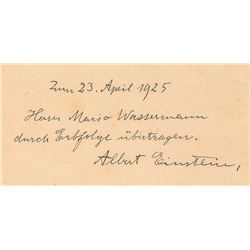 Zum 23. April 1925
Herrn Mario Wassermann
durch Erbfolge übertragen.
Albert Einstein,